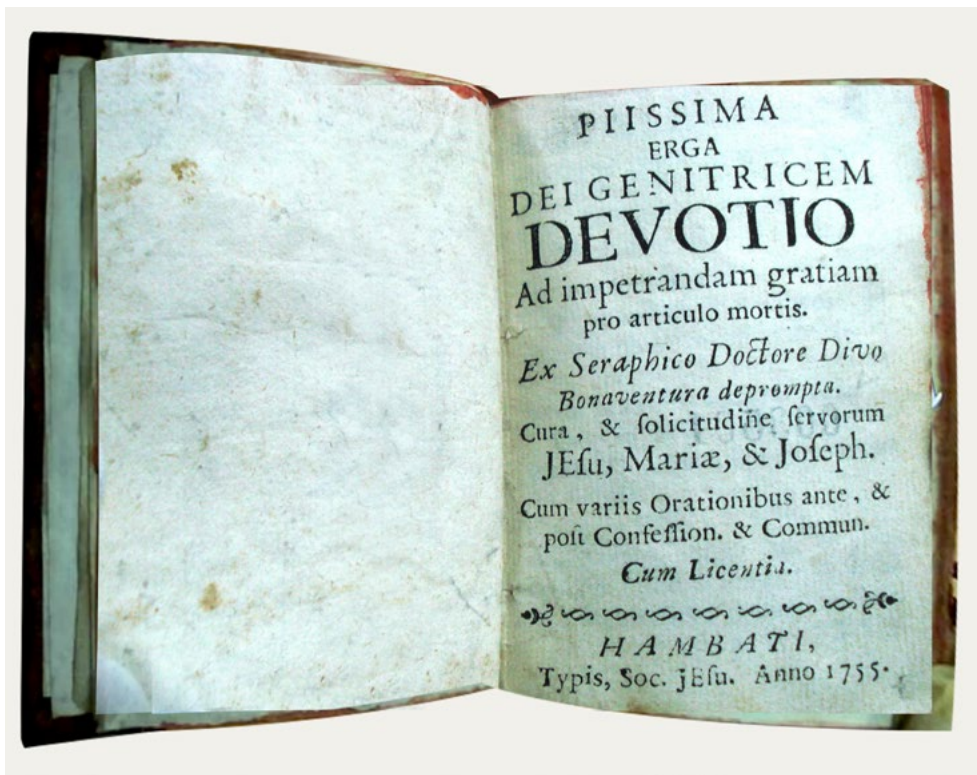 PIISSIMA
ERGA
DEI GENITRICEM
DEVOTIO
Ad impetrandam gratiam
pro articulo mortis.
Ex Seraphico Doctore Divo
Bonaventura deprompta.
Cura, & ſolicitudine ſervorum
JEſu, Mariæ, & Joſeph.
Cum variis Orationibus ante, &
poſt Confeſſion. & Commun.
Cum Licentia.
HAMBATI,
Typis, Soc. jEſu. Anno 1755.